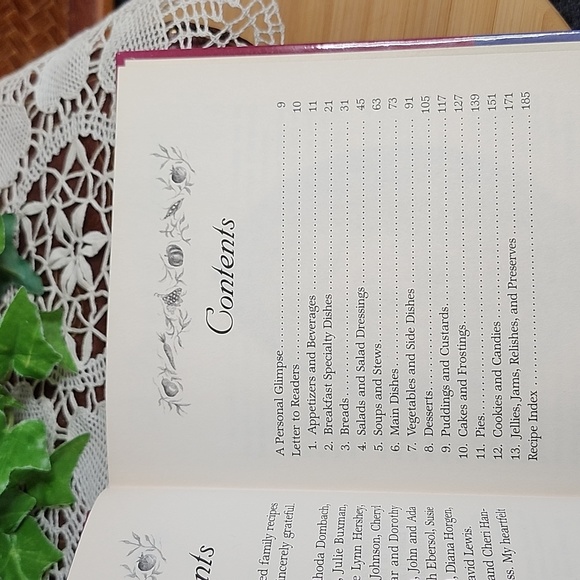 nts
ed family recipes
sincerely grateful
hoda Dombach,
, Julie Buxman,
e Lynn Hershey,
Johnson, Cheryl
ar and Dorothy
, John and Ada
Ebersol, Susie
Diana Horgen,
avid Lewis.
and Cheri Han-
ss. My heartfelt
Contents
A Personal Glimpse 9
Letter to Readers 10
1. Appetizers and Beverages 11
2. Breakfast Specialty Dishes 21
3. Breads 31
4. Salads and Salad Dressings 45
5. Soups and Stews 63
6. Main Dishes 73
7. Vegetables and Side Dishes 91
8. Desserts 105
9. Puddings and Custards 117
10. Cakes and Frostings 127
11. Pies 139
12. Cookies and Candies 151
13. Jellies, Jams, Relishes, and Preserves 171
Recipe Index 185